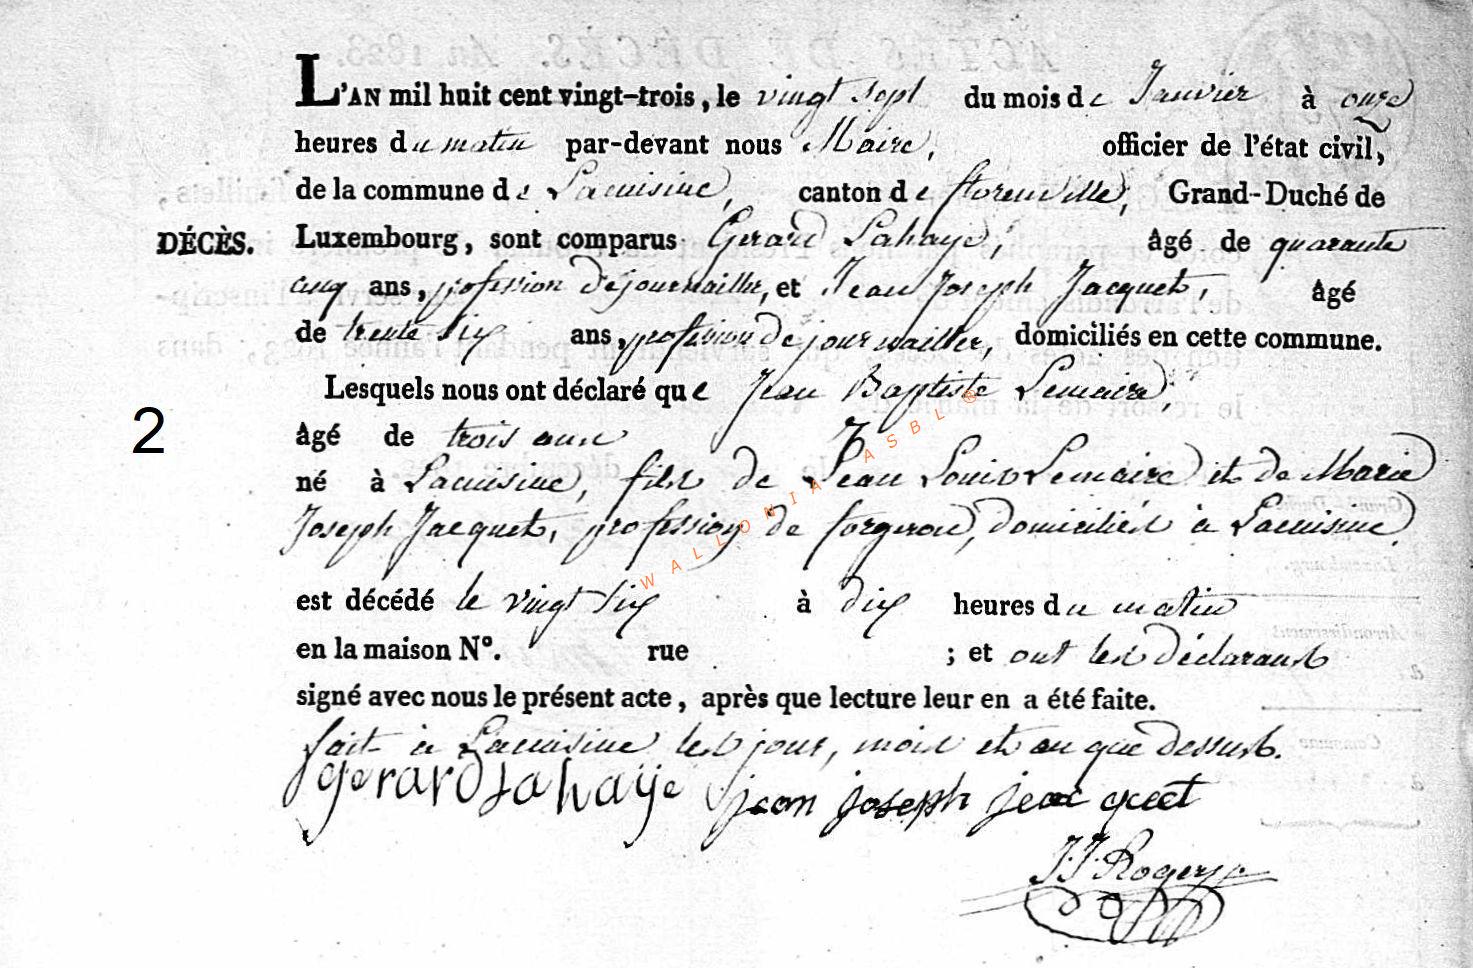 L'AN mil huit cent vingt-trois, le vingt sept du mois de Janvier à onze
heures du matin par-devant nous Maire, officier de l'état civil,
de la commune de Lacuisine, canton de florenville, Grand-Duché de
DÉCÈS. Luxembourg, sont comparus Gerard Lahaye, âgé de quarante
cinq ans, profession de journaillier, et Jean Joseph Jacquet, âgé
de trente six ans, profession de journaillier, domiciliés en cette commune.
Lesquels nous ont déclaré que Jean Baptiste Lemaire,
2 âgé de trois ans
né à Lacuisine, fils de Jean Louis Lemaire et de Marie
Joseph Jacquet, profession de forgeron, domiciliés à Lacuisine,
est décédé le vingt six à dix heures du matin
en la maison N°. rue ; et ont les déclarants
signé avec nous le présent acte, après que lecture leur en a été faite.
fait à Lacuisine les jour, mois et an que dessus.
gerard lahaye jean joseph jacquet
J.J. Roger
WALLONIA ASBL ®